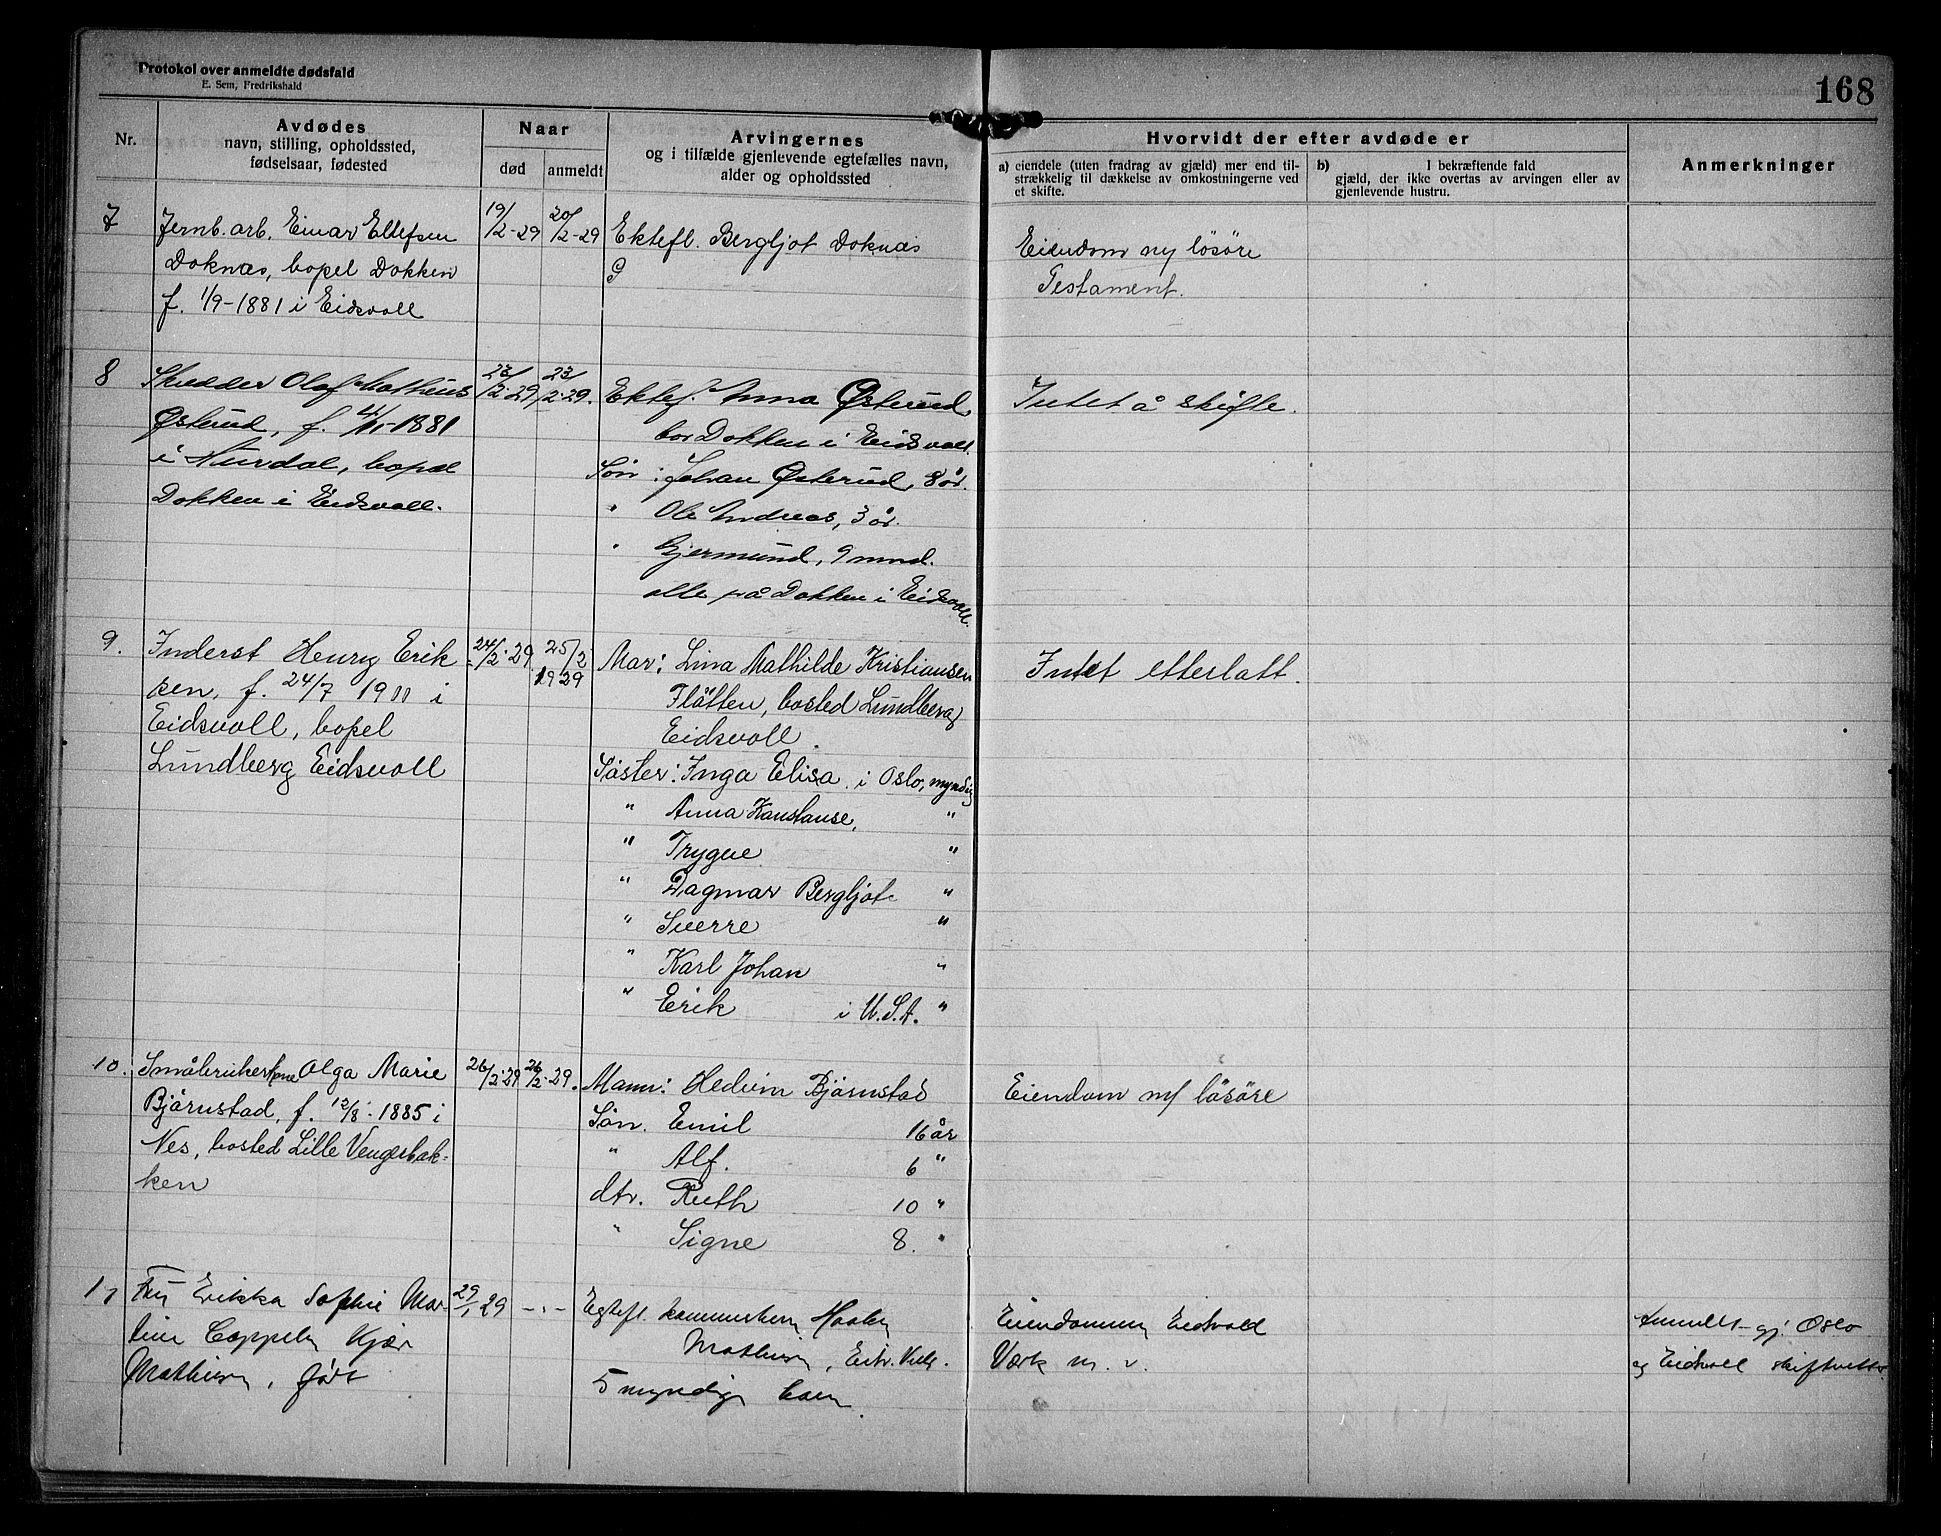 Protokol over anmeldte dødsfald
E. Sem, Fredrikshald
168
Nr.
Avdødes
navn, stilling, opholdssted,
fødselsaar, fødested
Naar
død
anmeldt
Arvingernes
og i tilfælde gjenlevende egtefælles navn,
alder og opholdssted
Hvorvidt der efter avdøde er
a) eiendele (uten fradrag av gjæld) mer end til-
strækkelig til dækkelse av omkostningerne ved
et skifte.
b) I bekræftende fald
gjæld, der ikke overtas av arvingen eller av
gjenlevende hustru.
Anmerkninger
7
Jernb. arb. Einar Ellefsen
Doknæs, bopel Dokken
f. 1/9-1881 i Eidsvoll
19/2-29
20/2-29
Ektefl. Bergljot Doknæs
Eiendom m/ løsöre
Testament.
8
Skredder Olaf Matheus
Østerud, f. 4/11-1881
i Hurdal, bopæl
Dokken i Eidsvoll.
23/2-29
23/2-29.
Ektef. Anna Østerud
bor Dokken i Eidsvoll.
Søn: Johan Østerud, 8 år.
" Ole Andreas, 3 år.
" Gjermund, 9 mnd.
alle på Dokken i Eidsvoll.
Intet å skifte.
9.
Inderst Henry Erik
sen, f. 24/7 1900 i
Eidsvoll, bopel
Lundberg Eidsvoll
24/2-29
25/2
1929
Mor: Lina Mathilde Kristiansen
Flåtten, bosted Lundberg
Eidsvoll.
Søster: Inga Elisa. i Oslo, myndig
" Anna Konstanse, "
" Trygve "
" Dagmar Bergljot "
" Sverre "
" Karl Johan "
" Erik i U.S.A. "
Intet etterlatt.
10.
Småbrukerkone Olga Marie
Bjørnstad, f. 13/8-1885 i
Nes, bosted Lille Vengerbak-
ken
26/2-29
26/2-29.
Mann: Hedvin Bjørnstad
Søn. Emil 16 år
" Alf. 6 "
dtr. Ruth 10 "
" Signe 8. "
Eiendom m/ løsöre
11
Fru Erikka Sophie Mar-
tine Cappelen Kjær
Mathiesen, født
29/1 29
-"-
Egtefl. kammerherre Haaken
Mathiesen, Eidsv. Verk.
5 myndige barn
Eiendommen Eidsvold
Værk m. v.
Anmeldt gj. Oslo
og Eidsvoll skifterett